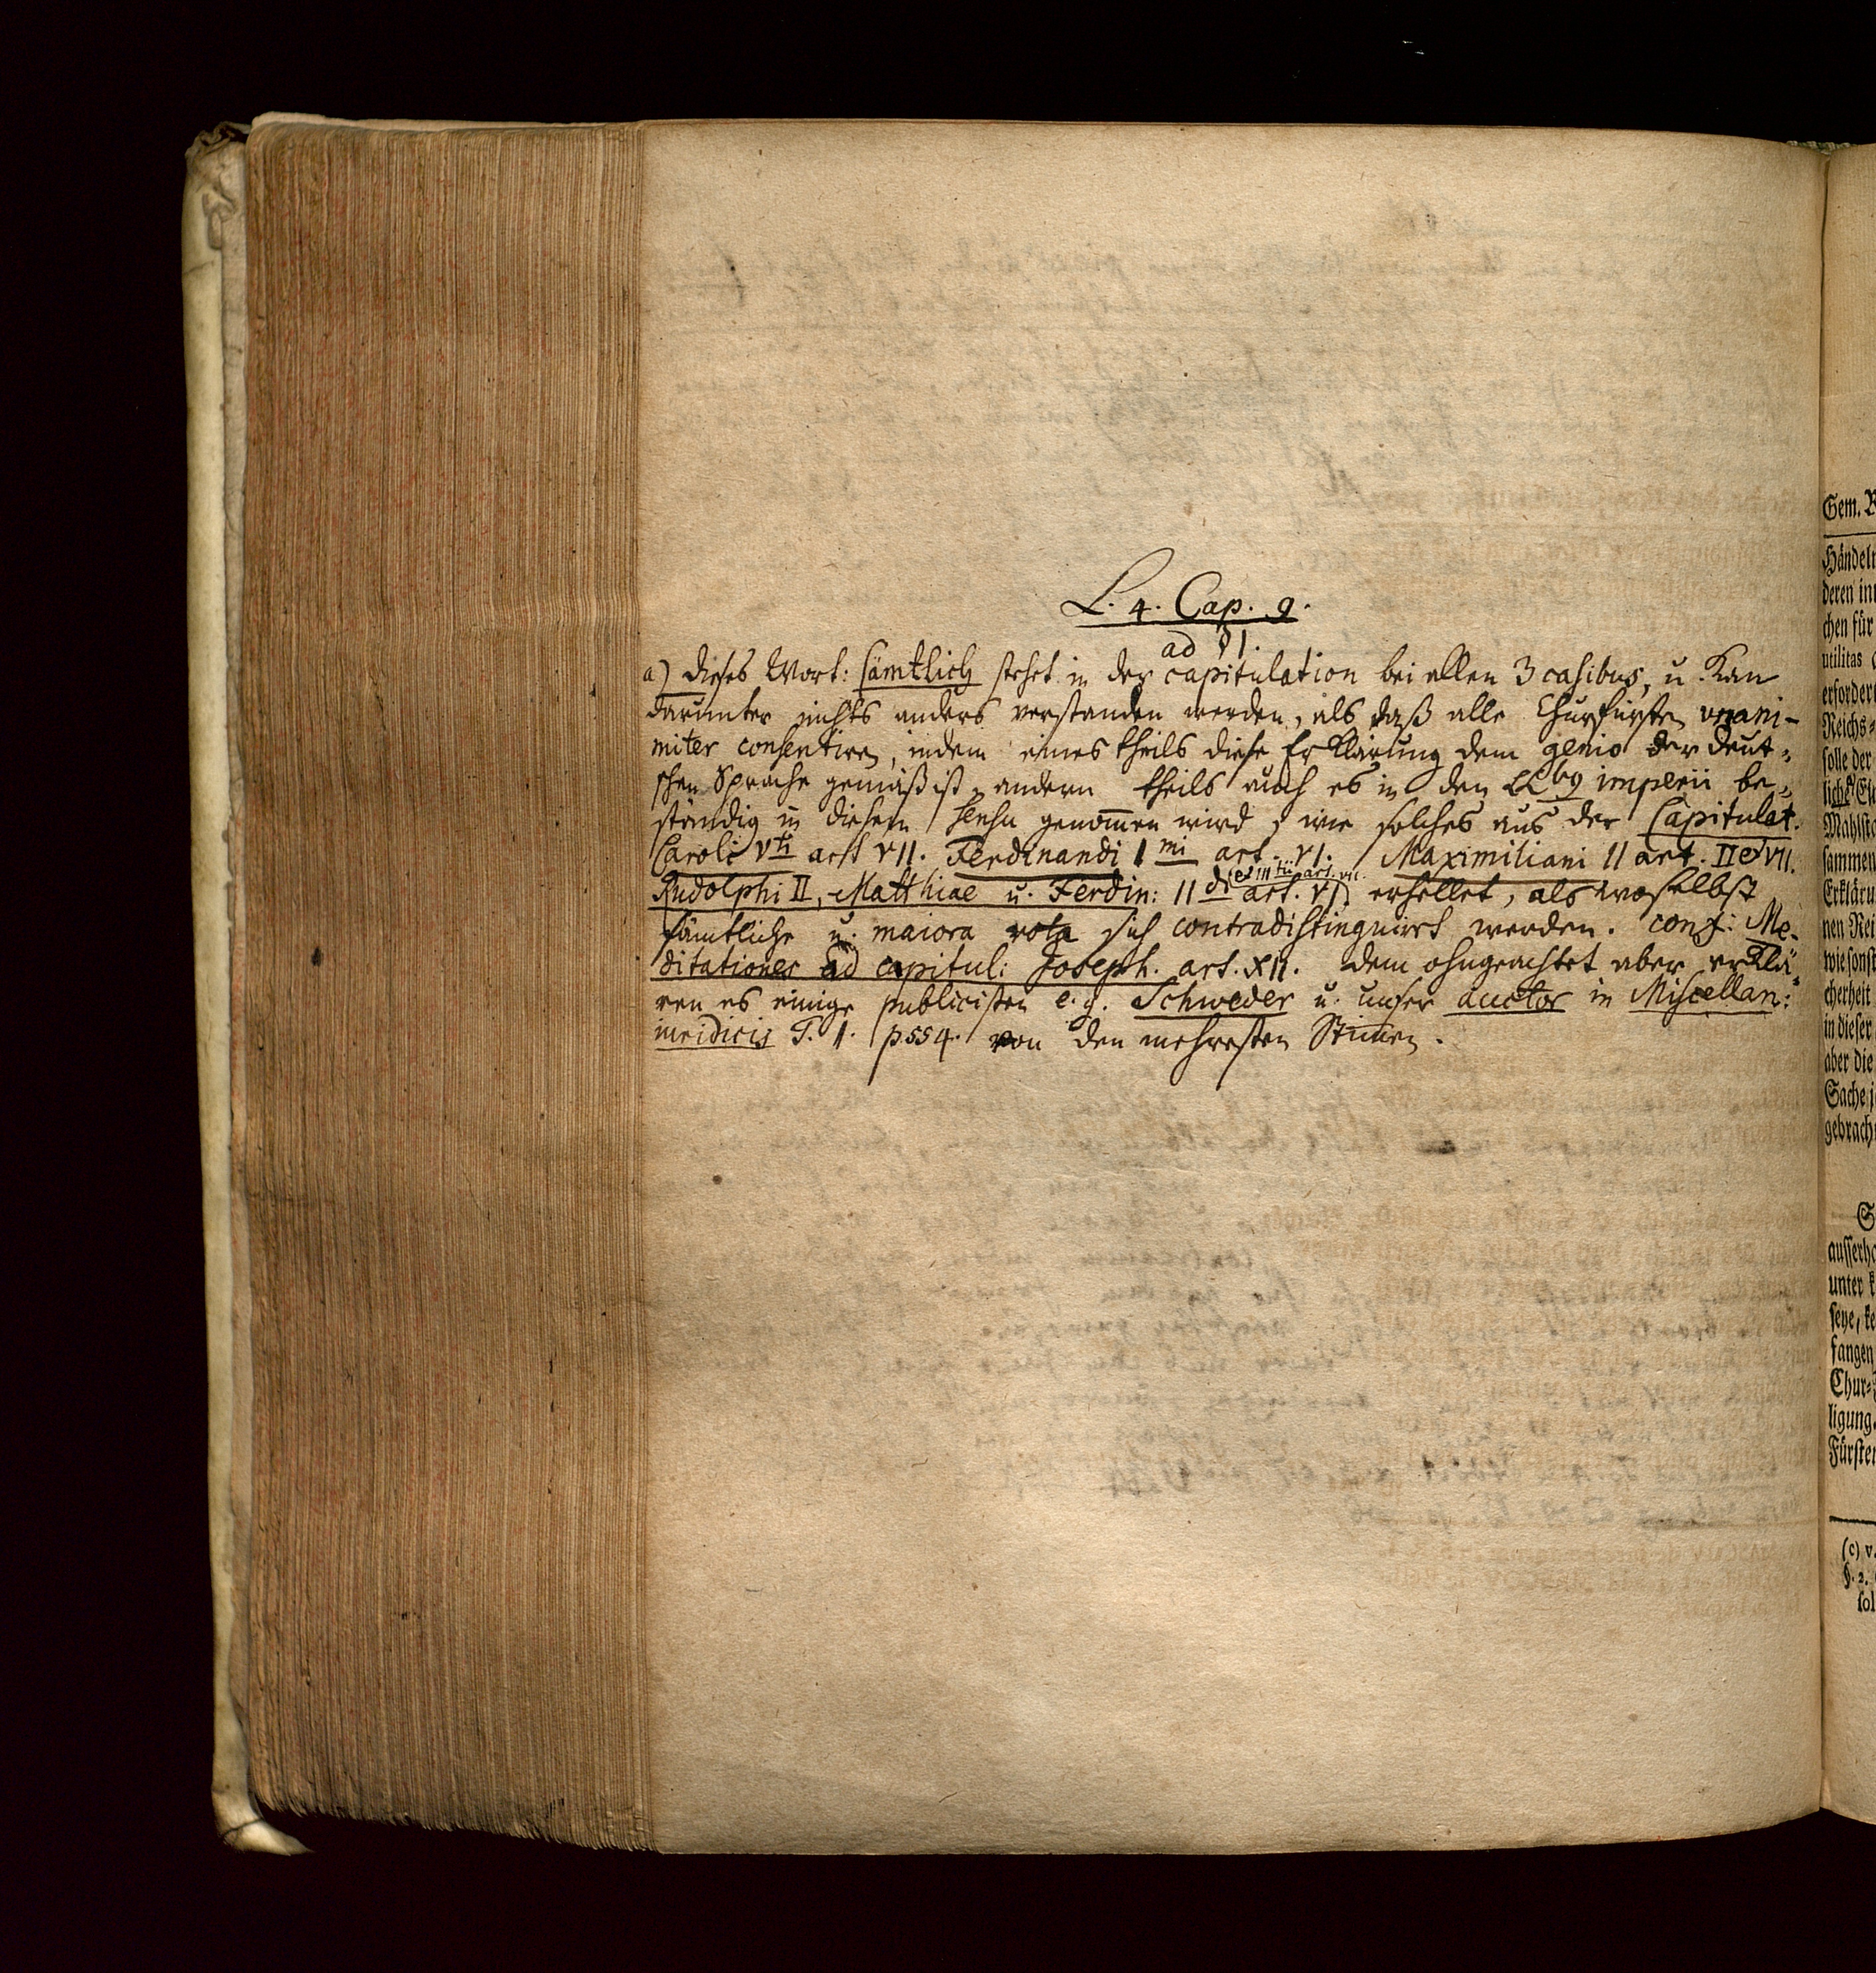 L. 4. Cap. 9.
ad § 1.
a) dieses Wort: sämtlich stehet in der capitulation bei allen 3 casibus, u. kan
darunter nichts anders verstanden werden, als daß alle Churfürsten unani-
miter consentiren, indem eines theils diese Erklärung dem genio der deut-
schen Sprache gemäß ist, andern theils auch es in den LLbg imperii be-
ständig in diesem sensu genom̅en wird, wie solches aus der Capitulat.
Caroli Vti art VII. Ferdinandi Imi art. VI. Maximiliani II art. II et VII.
Rudolphi II, Matthiae u. Ferdin: IIdi (et IIItii art. VII.
art. VI) erhellet, als woselbst
sämtliche u. maiora vota sich contradistinguirt werden. conf: Me-
ditationes ad capitul: Joseph. art. XII. dem ohngeachtet aber erklä-
ren es einige publicisten e. g. Schweder u. unser auctor in Miscellan:
iuridicis T. I. p. 554. von den mehresten Stim̅en.
Gem. R
Händel
deren in
chen für
utilitas
erfordert
Reichs-
solle der
liche
Mahlst
sammen
Erkläru
nen Rei
wie sonst
cherheit
in dieser
aber die
Sache
gebrach
S
ausserh
unter
seye, ke
fangen
Chur-
ligung.
Fürsten
(c) v.
§. 2.
sol